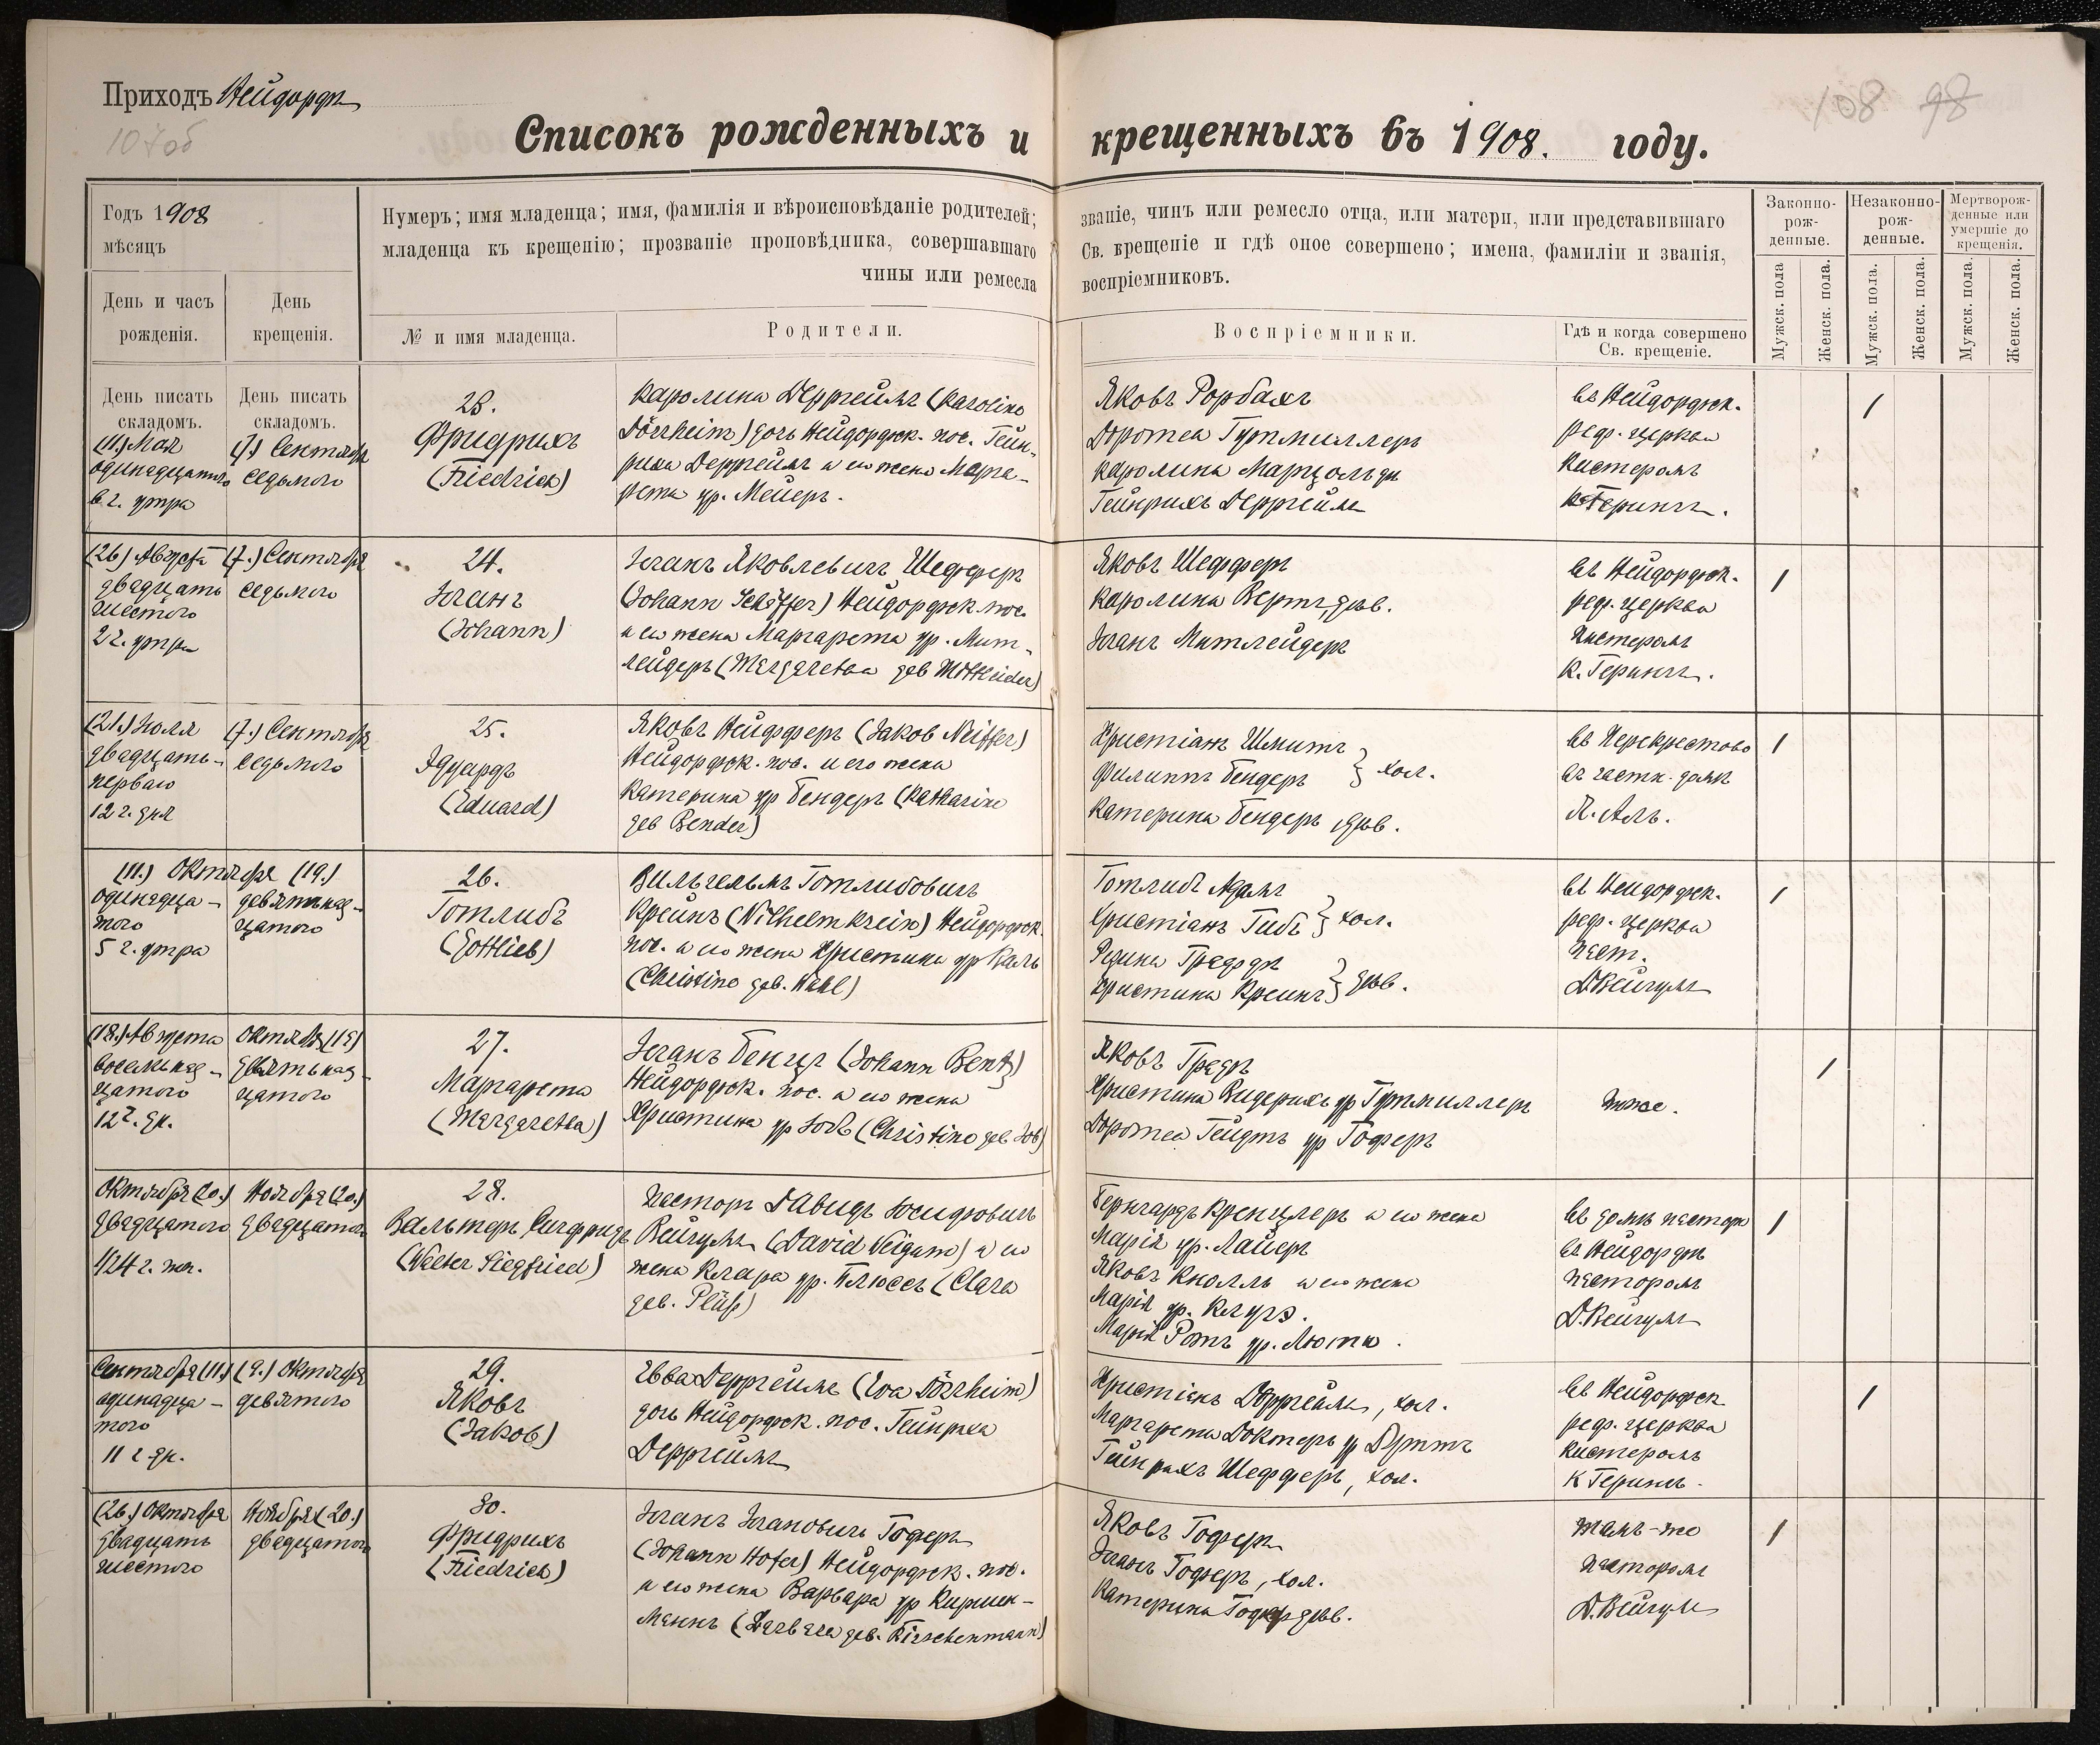 Приходъ Нейдорфъ
107об
108 98
Списокъ рожденныхъ и крещенныхъ въ 1908. году.
Годъ 1908
мѣсяцъ
Нумеръ; имя младенца; имя, фамилія и вѣроисповѣданіе родителей; званіе, чинъ или ремесло отца, или матери, или представившаго
младенца къ крещенію; прозваніе проповѣдника, совершавшаго Св. крещеніе и гдѣ оное совершено; имена, фамиліи и званія,
чины или ремесла воспріемниковъ.
Законно-
рож-
денные.
Незаконно-
рож-
денные.
Мертворож-
денные или
умершіе до
крещенія.
День и часъ
рожденія.
День
крещенія.
№ и имя младенца.
Родители.
Воспріемники.
Гдѣ и когда совершено
Св. крещеніе.
Мужск. пола
Женск. пола.
Мужск. пола.
Женск. пола.
Мужск. пола.
Женск. пола.
День писать
складомъ.
День писать
складомъ.
(11.) Мая
одинадцатого
6 г. утра
(7.) Сентября
седьмого
23.
Фридрихъ
(Friedrich)
Каролина Дерргеймъ (Karoline
Dörrheim) дочь Нейдорфск. пос. Гейн-
риха Дерргеймъ и его жена Марга-
рета ур. Мейеръ.
Яковъ Рорбахъ
Доротеа Гутмиллеръ
Каролина Марцольфъ
Гейнрихъ Дерргеймъ
въ Нейдорфск.
реф. церкви
Кистеромъ
К. Герингъ.
/
(26) Августа
двадцать
шестого
2 г. утра
(7.) Сентября
седьмого
24.
Іоганъ
(Johann)
Іоганъ Яковлевичъ Шефферъ
(Johann Schäffer) Нейдорфск. пос.
и его жена Маргарета ур. Мит-
лейдеръ (Margaretha geb Mittleider)
Яковъ Шефферъ
Каролина Вертъ, дѣв.
Іоганъ Митлейдеръ
въ Нейдорфск.
реф. церкви
Кистеромъ
К. Герингъ.
/
(21.) Іюля
двадцать-
перваго
12 г. дня
(7.) Сентября
седьмого
25.
Эдуардъ
(Eduard)
Яковъ Нейфферъ (Jakob Neiffer)
Нейдорфск. пос. и его жена
Катерина ур Бендеръ (Katharine
geb Bender)
Христіанъ Шмитъ
Филиппъ Бендеръ } хол.
Катерина Бендеръ, дѣв.
въ Перекрестово
въ частн. домѣ
Я. Аль.
/
(11.) Октября (19.)
одинадца-
того
5 г. утра
девятнад-
цатого
26.
Готлибъ
(Gottlieb)
Вильгельмъ Готлибовичъ
Крейнъ (Wilhelm Krein) Нейдорфск.
пос. и его жена Христина ур Валь
(Christine geb. Wahl)
Готлибъ Адамъ
Христіанъ Гибъ } хол.
Регина Графъ
Христина Крейнъ } дѣв.
въ Нейдорфск.
реф. церкви
паст.
Д. Вейгумъ
/
(18.) Августа
восемнад-
цатого
12 г. дн.
Октября (19)
девятнад-
цатого
27.
Маргарета
(Margaretha)
Іоганъ Бенцъ (Johann Bentz)
Нейдорфск. пос. и его жена
Христина ур Іобъ (Christine geb Job)
Яковъ Графъ
Христина Видерихъ ур Гутмиллеръ
Доротеа Гейдтъ ур Гоферъ
тоже.
/
Октября (20.)
двадцатого
Ноября (20.)
двадцатого
28.
Вальтеръ Сигфридъ
(Walter Siegfried)
Пасторъ Давидъ Іосифовичъ
Вейгумъ (David Weigum) и его
жена Клара ур. Плюссъ (Clara
geb. Plüß)
Бернгардъ Кренцлеръ и его жена
Марія ур. Лайеръ
Яковъ Кнолль и его жена
Марія ур. Клугэ.
Марія Ротъ ур. Люти.
въ домѣ пастора
въ Нейдорфѣ
пасторомъ
Д. Вейгумъ
/
Сентября (11.)
одинадца-
того
11 г. дн.
(9.) Октября
девятого
29.
Яковъ
(Jakob)
Ева Дерргеймъ (Eva Dörrheim)
дочь Нейдорфск. пос. Гейнриха
Дерргеймъ
Христіанъ Дерргеймъ, хол.
Маргарета Доктеръ ур Дуттъ
Гейнрихъ Шефферъ, хол.
въ Нейдорфск
реф. церкви
Кистеромъ
К Герингъ.
/
(26.) Октября
двадцать
шестого
Ноября (20.)
двадцатого
30.
Фридрихъ
(Friedrich)
Іоганъ Іогановичъ Гоферъ
(Johann Hofer) Нейдорфск. пос.
и его жена Варвара ур Киршен-
манъ (Barbara geb. Kirschenmann)
Яковъ Гоферъ
Іоганъ Гоферъ, хол.
Катерина Гоферъ дѣв.
тамъ-же
пасторомъ
Д. Вейгумъ
/